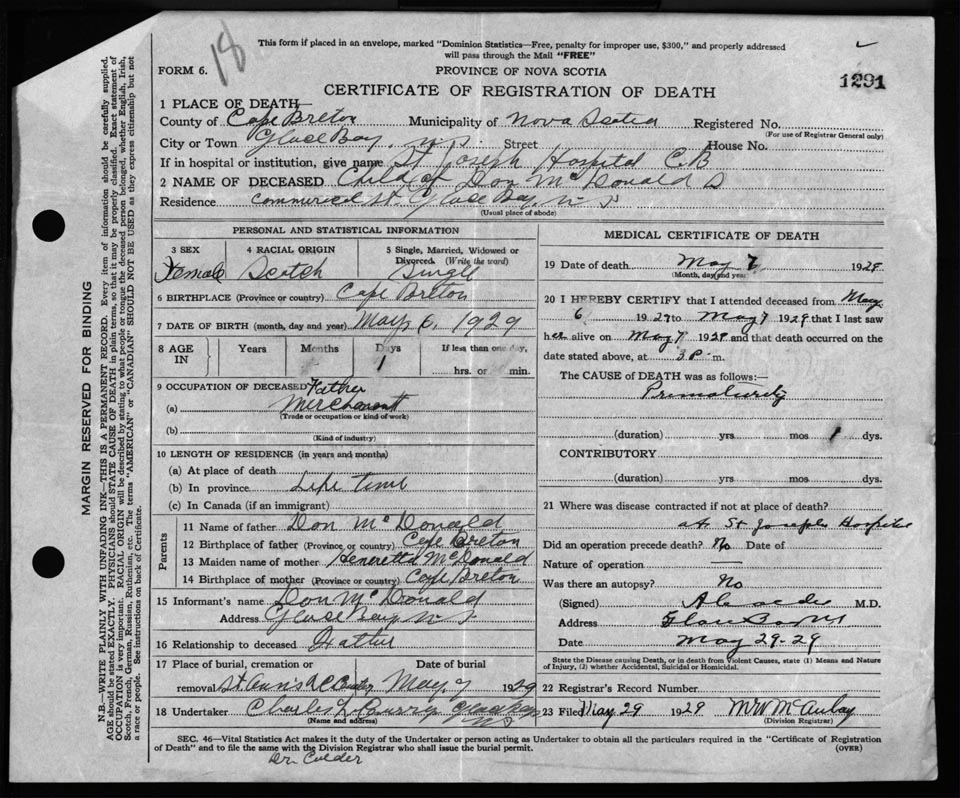 18
This form if placed in an envelope, marked "Dominion Statistics—Free, penalty for improper use, $300," and properly addressed
will pass through the Mail "FREE"
FORM 6.
PROVINCE OF NOVA SCOTIA
1291
CERTIFICATE OF REGISTRATION OF DEATH
1 PLACE OF DEATH—
County of Cape Breton Municipality of Nova Scotia Registered No.
(For use of Registrar General only)
City or Town Glace Bay, N.S. Street House No.
If in hospital or institution, give name St. Joseph Hospital C.B
2 NAME OF DECEASED Child of Don McDonald D
Residence Commercial St. Glace Bay, N S
(Usual place of abode)
PERSONAL AND STATISTICAL INFORMATION
3 SEX 4 RACIAL ORIGIN 5 Single, Married, Widowed or
Divorced. (Write the word)
Female Scotch Single
6 BIRTHPLACE (Province or country) Cape Breton
7 DATE OF BIRTH (month, day and year) May, 6, 1929
8 AGE IN Years Months Days If less than one day,
1 hrs. or min.
9 OCCUPATION OF DECEASED Father
(a) Merchant
(Trade or occupation or kind of work)
(b)
(Kind of industry)
10 LENGTH OF RESIDENCE (in years and months)
(a) At place of death
(b) In province Life time
(c) In Canada (if an immigrant)
Parents
11 Name of father Don McDonald
12 Birthplace of father (Province or country) Cape Breton
13 Maiden name of mother Henrietta McDonald
14 Birthplace of mother (Province or country) Cape Breton
15 Informant's name Don McDonald
Address Glace Bay N S
16 Relationship to deceased Father
17 Place of burial, cremation or Date of burial
removal St. Ann's May, 7 1929
18 Undertaker Charles L Curry Glace Bay
(Name and address) N S
MEDICAL CERTIFICATE OF DEATH
19 Date of death May 7 1929
(Month, day and year)
20 I HEREBY CERTIFY that I attended deceased from May
6 1929 to May 7 1929 that I last saw
her alive on May 7 1929 and that death occurred on the
date stated above, at 3 P. m.
The CAUSE of DEATH was as follows:—
Prematurity
(duration) yrs mos 1 dys.
CONTRIBUTORY
(duration) yrs mos dys.
21 Where was disease contracted if not at place of death?
at St Josephs Hospital
Did an operation precede death? No Date of
Nature of operation —
Was there an autopsy? No
(Signed) M.D.
Address Glace Bay NS
Date May 29-29
State the Disease causing Death, or in death from Violent Causes, state (1) Means and Nature
of Injury, (2) whether Accidental, Suicidal or Homicidal.
22 Registrar's Record Number
23 Filed May 29 1929 McAulay
(Division Registrar)
SEC. 46—Vital Statistics Act makes it the duty of the Undertaker or person acting as Undertaker to obtain all the particulars required in the "Certificate of Registration
of Death" and to file the same with the Division Registrar who shall issue the burial permit.
(OVER)
Dr. Calder
MARGIN RESERVED FOR BINDING
N.B.—WRITE PLAINLY WITH UNFADING INK—THIS IS A PERMANENT RECORD. Every item of information should be carefully supplied.
AGE should be stated EXACTLY. PHYSICIANS should STATE CAUSE OF DEATH in plain terms, so that it may be properly classified. Exact statement of
OCCUPATION is very important. RACIAL ORIGIN will be described by stating to what people or tongue the deceased person belonged, whether English, Irish,
Scotch, French, German, Russian, Ruthenian, etc. The terms "AMERICAN" or "CANADIAN" SHOULD NOT BE USED as they express citizenship but not
a race or people. See instructions on back of Certificate.